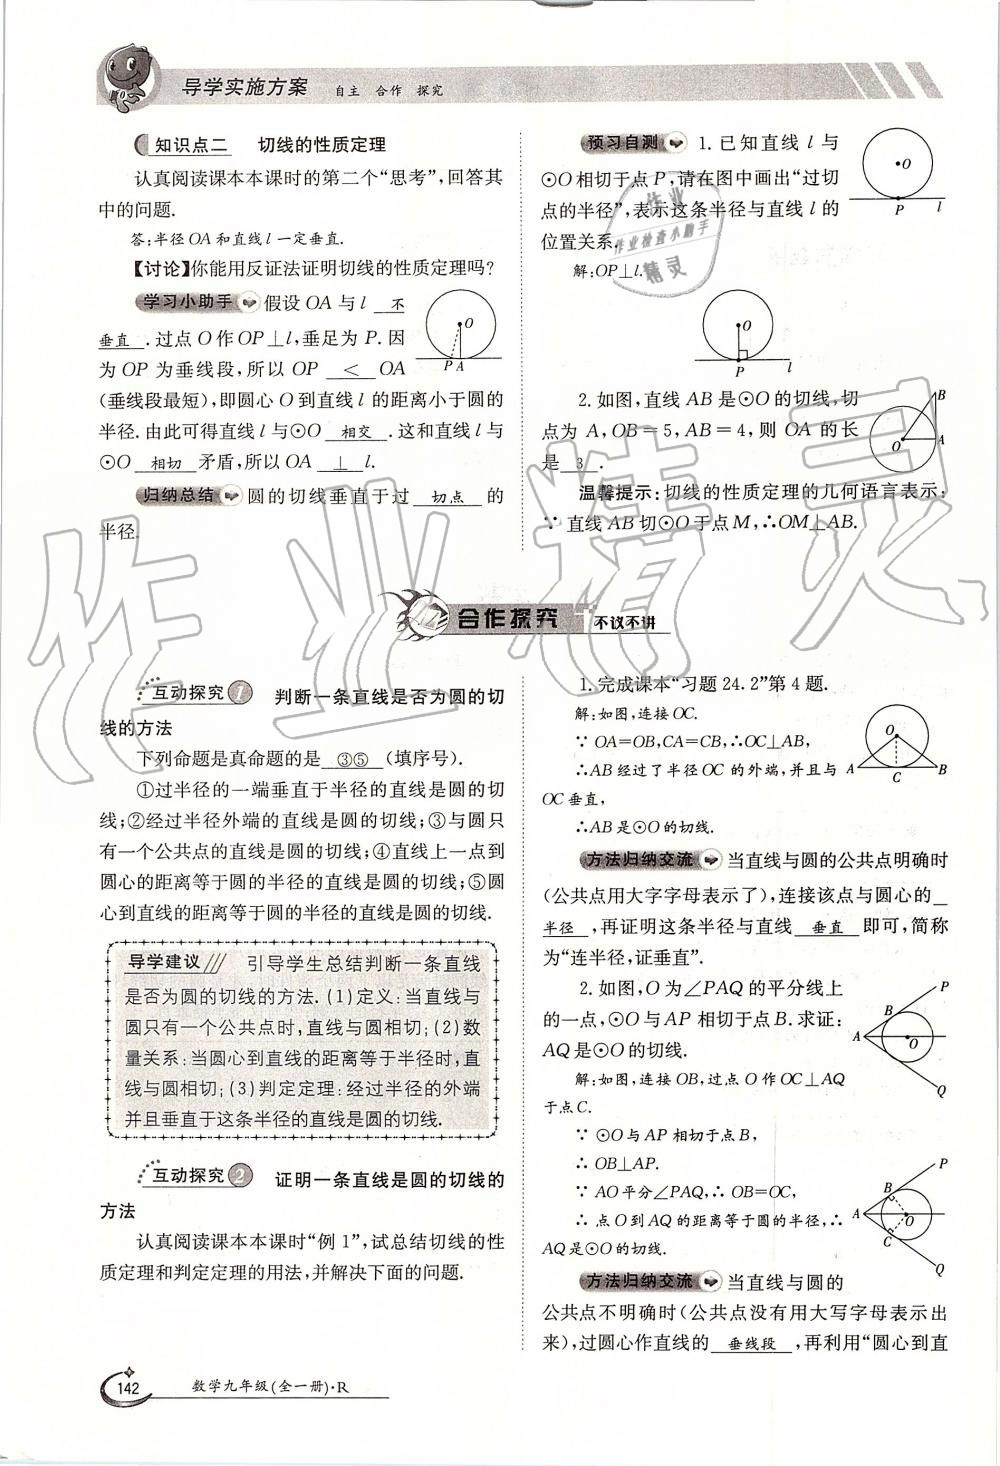 导学实施方案 自主 合作 探究
知识点二 切线的性质定理
认真阅读课本本课时的第二个“思考”,回答其
中的问题.
答:半径OA和直线l一定垂直.
【讨论】你能用反证法证明切线的性质定理吗?
学习小助手 假设OA与l 不
垂直.过点O作OP⊥l,垂足为P.因
为OP为垂线段,所以OP < OA
(垂线段最短),即圆心O到直线l的距离小于圆的
半径.由此可得直线l与⊙O 相交.这和直线l与
⊙O 相切 矛盾,所以OA ⊥ l.
归纳总结 圆的切线垂直于过 切点 的
半径.
O
P A
预习自测 1.已知直线l与
⊙O相切于点P,请在图中画出“过切
点的半径”,表示这条半径与直线l的
位置关系.
解:OP⊥l.
O
P l
O
P l
2.如图,直线AB是⊙O的切线,切
点为A,OB=5,AB=4,则OA的长
是 3 .
B
O A
温馨提示:切线的性质定理的几何语言表示:
∵直线AB切⊙O于点M,∴OM⊥AB.
合作探究 不议不讲
互动探究1 判断一条直线是否为圆的切
线的方法
下列命题是真命题的是 ③⑤ (填序号).
①过半径的一端垂直于半径的直线是圆的切
线;②经过半径外端的直线是圆的切线;③与圆只
有一个公共点的直线是圆的切线;④直线上一点到
圆心的距离等于圆的半径的直线是圆的切线;⑤圆
心到直线的距离等于圆的半径的直线是圆的切线.
导学建议 引导学生总结判断一条直线
是否为圆的切线的方法.(1)定义:当直线与
圆只有一个公共点时,直线与圆相切;(2)数
量关系:当圆心到直线的距离等于半径时,直
线与圆相切;(3)判定定理:经过半径的外端
并且垂直于这条半径的直线是圆的切线.
互动探究2 证明一条直线是圆的切线的
方法
认真阅读课本本课时“例1”,试总结切线的性
质定理和判定定理的用法,并解决下面的问题.
1.完成课本“习题24.2”第4题.
解:如图,连接OC.
∵OA=OB,CA=CB,∴OC⊥AB,
∴AB经过了半径OC的外端,并且与
OC垂直,
∴AB是⊙O的切线.
O
A C B
方法归纳交流 当直线与圆的公共点明确时
(公共点用大字字母表示了),连接该点与圆心的
半径,再证明这条半径与直线 垂直 即可,简称
为“连半径,证垂直”.
2.如图,O为∠PAQ的平分线上
的一点,⊙O与AP相切于点B.求证:
AQ是⊙O的切线.
解:如图,连接OB,过点O作OC⊥AQ
于点C.
∵⊙O与AP相切于点B,
∴OB⊥AP.
∵AO平分∠PAQ,∴OB=OC,
∴点O到AQ的距离等于圆的半径,∴
AQ是⊙O的切线.
P
B
A O
Q
P
B
A O
C
Q
方法归纳交流 当直线与圆的
公共点不明确时(公共点没有用大写字母表示出
来),过圆心作直线的 垂线段,再利用“圆心到直
142 数学九年级(全一册)·R
作业
作业检查小助手
精灵
作业精灵